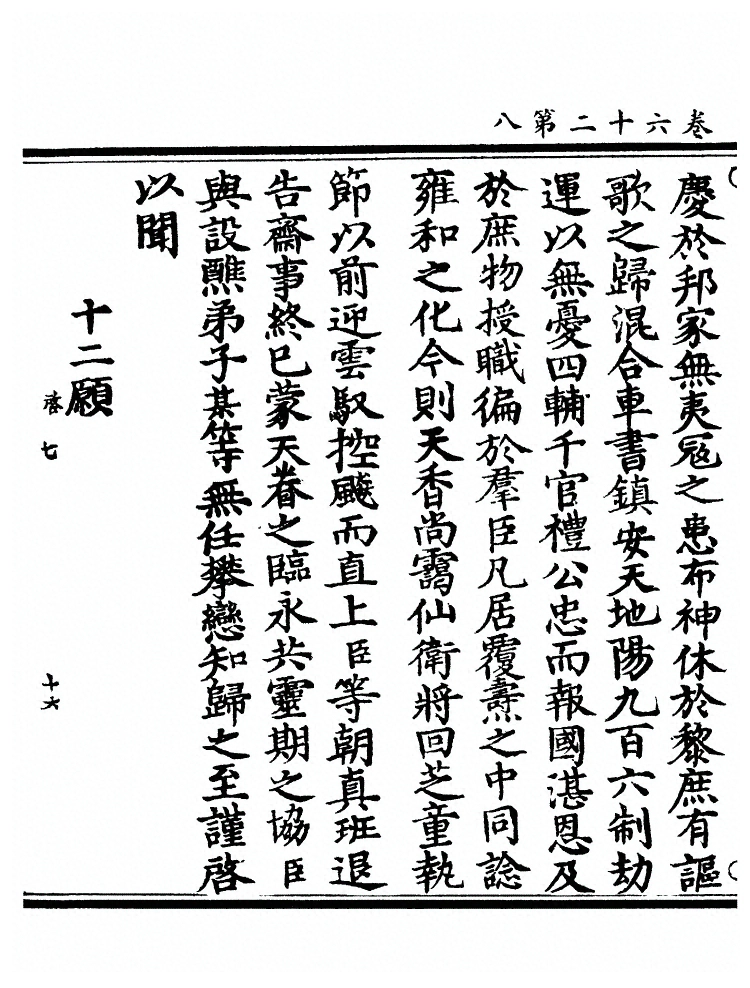 卷六十二第八
慶於邦家無夷冦之患布神休於黎庶有謳
歌之歸混合車書鎮安天地陽九百六制劫
運以無憂四輔千官禮公忠而報國湛恩及
於庶物授職徧於羣臣凡居覆燾之中同諗
雍和之化今則天香尚靄仙衛將回芝童執
節以前迎雲馭控飈而直上臣等朝真班退
告齋事終已蒙天眷之臨永共靈期之協臣
與設醮弟子某等無任攀戀知歸之至謹啓
以聞
十二願
啓七
十六